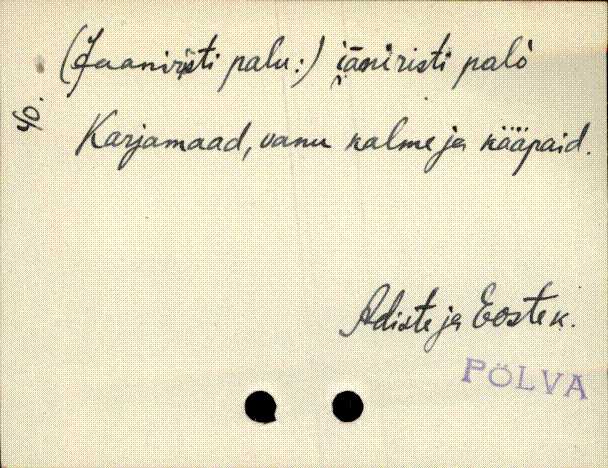 (Jaaniristi palu:) i̯āniristi palò
40.
Karjamaad, vanu kalme ja kääpaid.
Adiste ja Eoste k.
PÕLVA